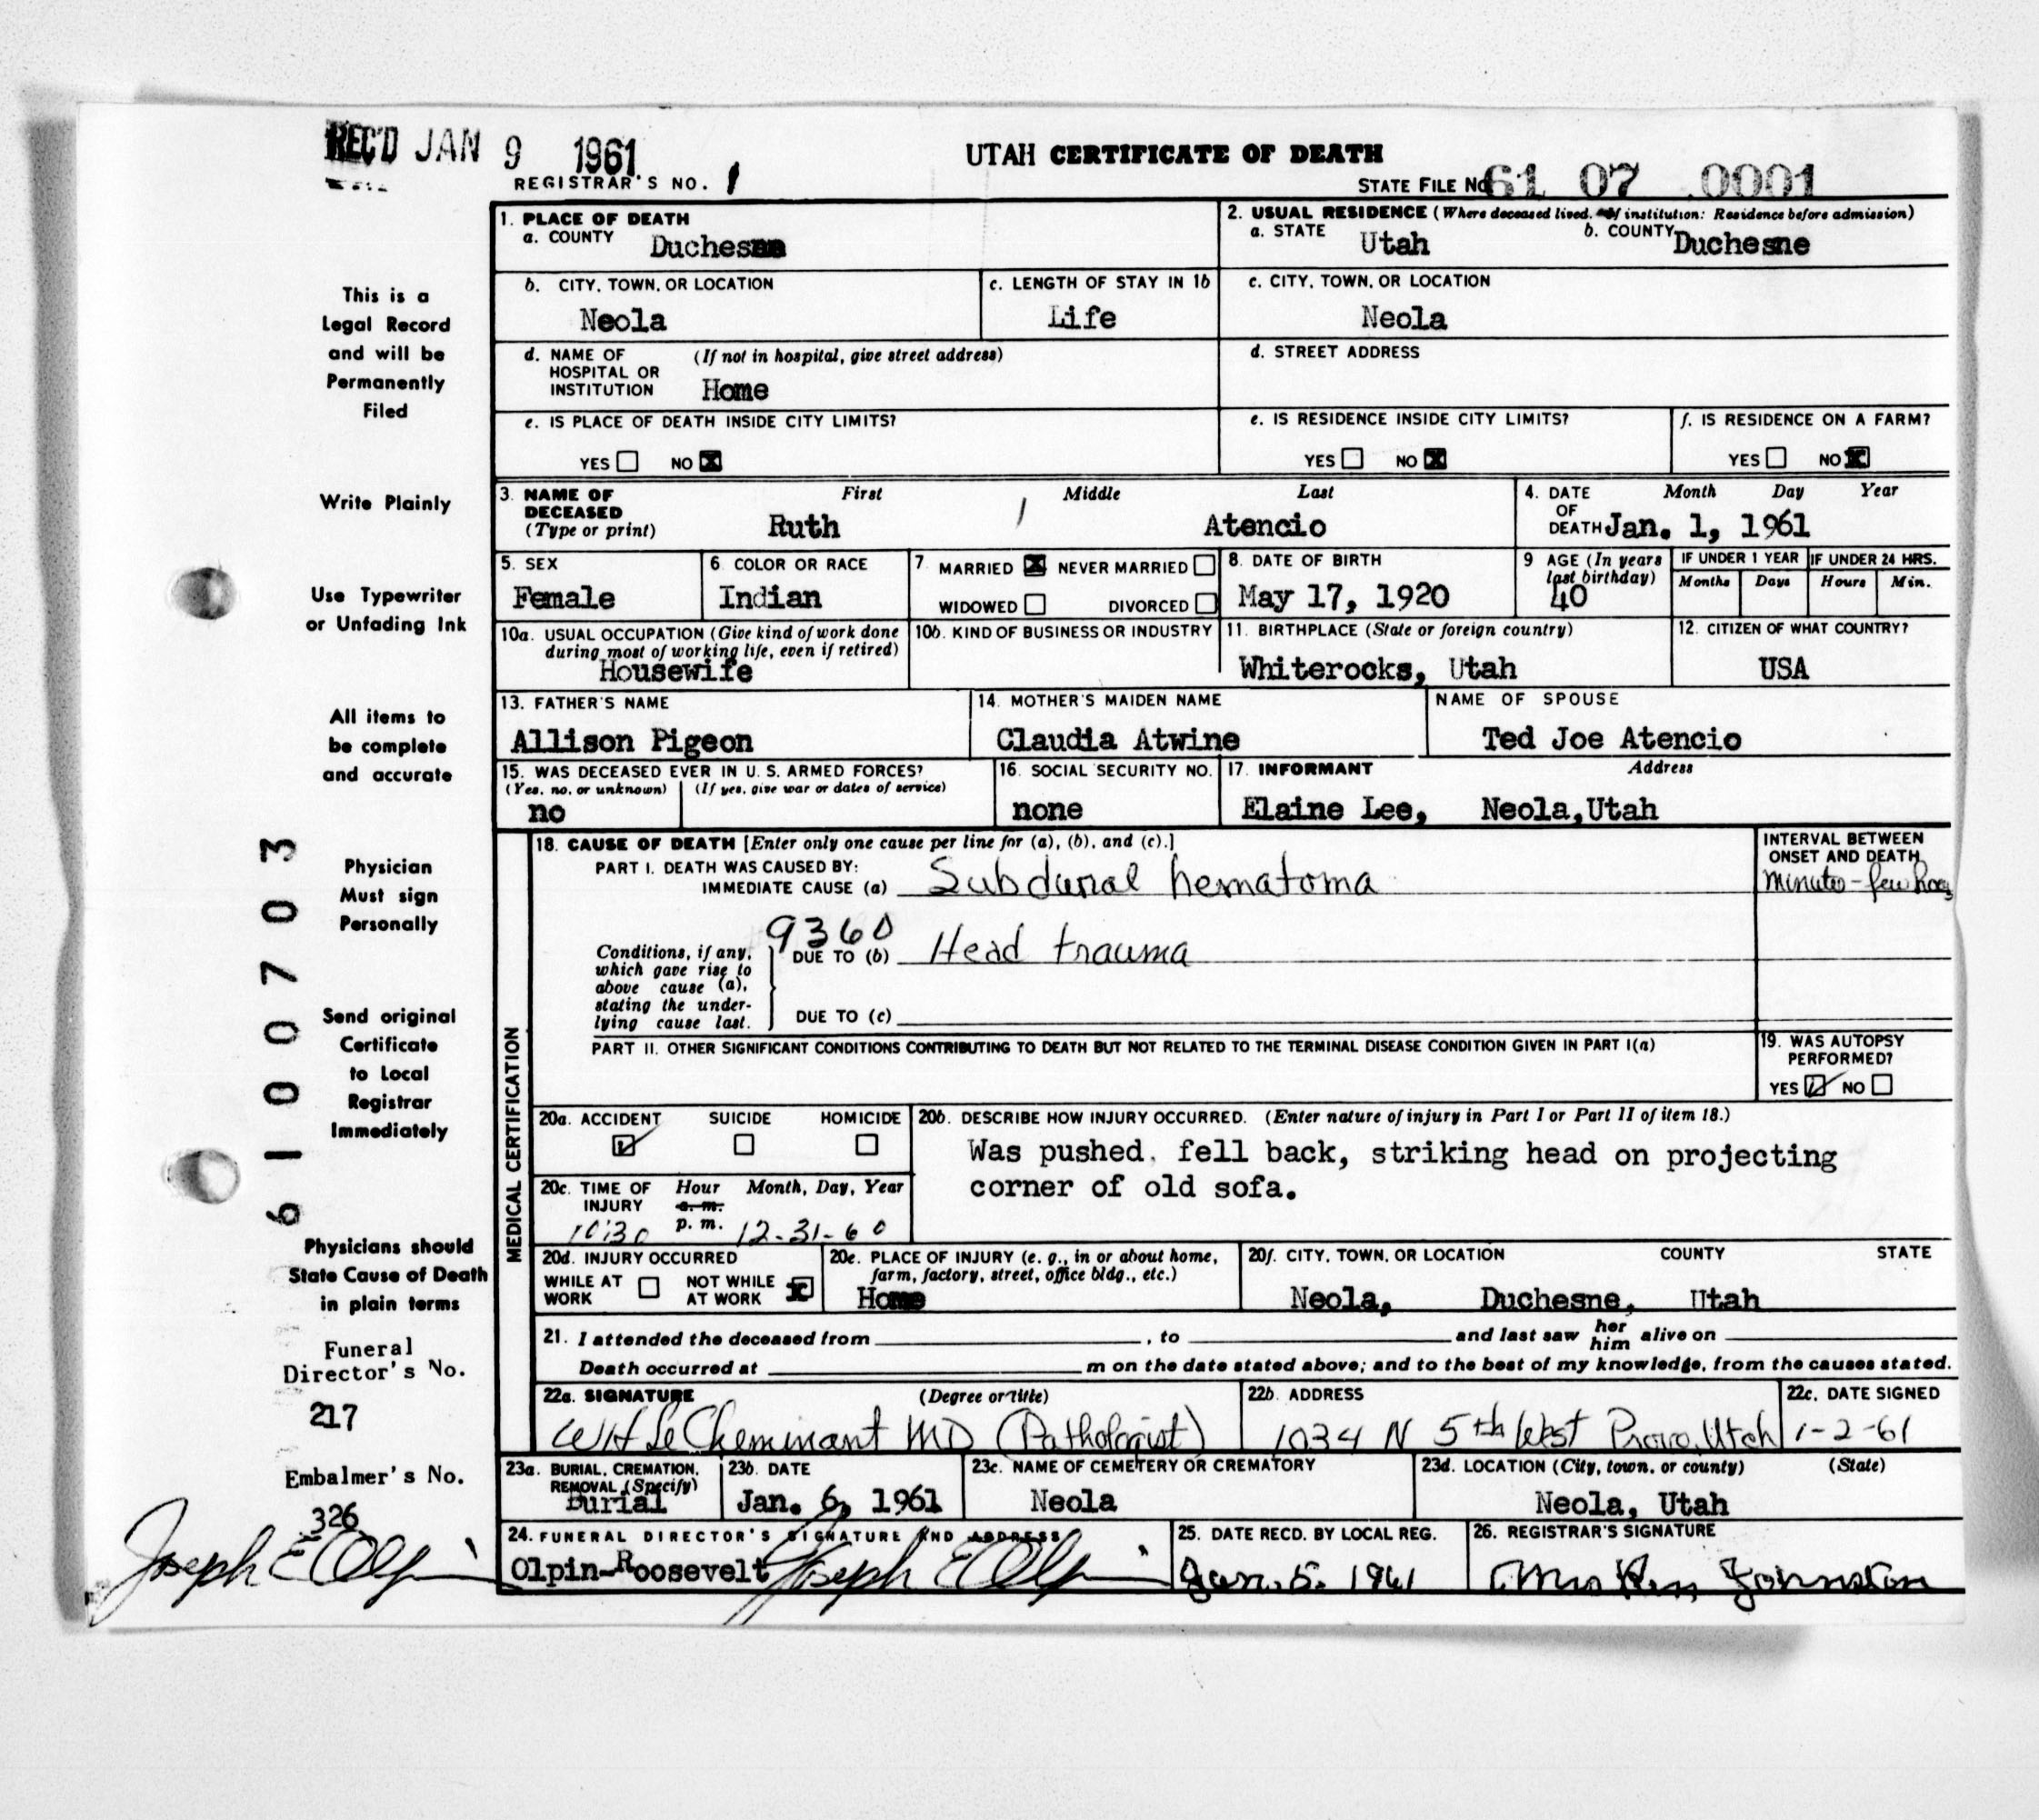 REC'D JAN 9 1961
UTAH CERTIFICATE OF DEATH
REGISTRAR'S NO. 1
STATE FILE No. 61 07 0001
1. PLACE OF DEATH
a. COUNTY Duchesne
2. USUAL RESIDENCE (Where deceased lived. If institution: Residence before admission)
a. STATE Utah b. COUNTY Duchesne
b. CITY, TOWN, OR LOCATION Neola
c. LENGTH OF STAY IN 1b Life
c. CITY, TOWN, OR LOCATION Neola
d. NAME OF HOSPITAL OR INSTITUTION (If not in hospital, give street address) Home
d. STREET ADDRESS
e. IS PLACE OF DEATH INSIDE CITY LIMITS? YES NO X
e. IS RESIDENCE INSIDE CITY LIMITS? YES NO X
f. IS RESIDENCE ON A FARM? YES NO X
3. NAME OF DECEASED (Type or print) First Middle Last
Ruth / Atencio
4. DATE OF DEATH Month Day Year
Jan. 1, 1961
5. SEX Female
6. COLOR OR RACE Indian
7. MARRIED X NEVER MARRIED WIDOWED DIVORCED
8. DATE OF BIRTH May 17, 1920
9 AGE (In years last birthday) 40
IF UNDER 1 YEAR Months Days
IF UNDER 24 HRS. Hours Min.
10a. USUAL OCCUPATION (Give kind of work done during most of working life, even if retired) Housewife
10b. KIND OF BUSINESS OR INDUSTRY
11. BIRTHPLACE (State or foreign country) Whiterocks, Utah
12. CITIZEN OF WHAT COUNTRY? USA
13. FATHER'S NAME Allison Pigeon
14. MOTHER'S MAIDEN NAME Claudia Atwine
NAME OF SPOUSE Ted Joe Atencio
15. WAS DECEASED EVER IN U.S. ARMED FORCES? (Yes, no, or unknown) (If yes, give war or dates of service) no
16. SOCIAL SECURITY NO. none
17. INFORMANT Address
Elaine Lee, Neola, Utah
MEDICAL CERTIFICATION
18. CAUSE OF DEATH [Enter only one cause per line for (a), (b), and (c).]
INTERVAL BETWEEN ONSET AND DEATH
PART I. DEATH WAS CAUSED BY:
IMMEDIATE CAUSE (a) Subdural hematoma
minutes - few hours
9360
Conditions, if any, which gave rise to above cause (a), stating the underlying cause last.
DUE TO (b) Head trauma
DUE TO (c)
PART II. OTHER SIGNIFICANT CONDITIONS CONTRIBUTING TO DEATH BUT NOT RELATED TO THE TERMINAL DISEASE CONDITION GIVEN IN PART I(a)
19. WAS AUTOPSY PERFORMED? YES ✓ NO
20a. ACCIDENT ✓ SUICIDE HOMICIDE
20b. DESCRIBE HOW INJURY OCCURRED. (Enter nature of injury in Part I or Part II of item 18.)
Was pushed, fell back, striking head on projecting
corner of old sofa.
20c. TIME OF INJURY Hour Month, Day, Year
a. m. p. m.
10:30 12-31-60
20d. INJURY OCCURRED WHILE AT WORK NOT WHILE AT WORK X
20e. PLACE OF INJURY (e. g., in or about home, farm, factory, street, office bldg., etc.) Home
20f. CITY, TOWN, OR LOCATION COUNTY STATE
Neola, Duchesne, Utah
21. I attended the deceased from , to and last saw her him alive on
Death occurred at m on the date stated above; and to the best of my knowledge, from the causes stated.
22a. SIGNATURE (Degree or title)
WH LeCheminant MD (Pathologist)
22b. ADDRESS
1034 N 5th West Provo, Utah
22c. DATE SIGNED
1-2-61
23a. BURIAL, CREMATION, REMOVAL (Specify) Burial
23b. DATE Jan. 6, 1961
23c. NAME OF CEMETERY OR CREMATORY Neola
23d. LOCATION (City, town, or county) (State)
Neola, Utah
24. FUNERAL DIRECTOR'S SIGNATURE AND ADDRESS
Olpin-Roosevelt Joseph E Olpin
25. DATE RECD. BY LOCAL REG.
Jan. 5. 1961
26. REGISTRAR'S SIGNATURE
Johnston
This is a
Legal Record
and will be
Permanently
Filed
Write Plainly
Use Typewriter
or Unfading Ink
All items to
be complete
and accurate
Physician
Must sign
Personally
Send original
Certificate
to Local
Registrar
Immediately
Physicians should
State Cause of Death
in plain terms
Funeral
Director's No.
217
Embalmer's No.
326
Joseph E Olpin
6100703